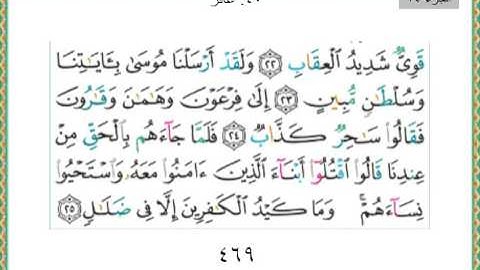 ٤٠. غافر
قَوِىٌّ شَدِيدُ ٱلْعِقَابِ ٢٢ وَلَقَدْ أَرْسَلْنَا مُوسَىٰ بِـَٔايَـٰتِنَا
وَسُلْطَـٰنٍ مُّبِينٍ ٢٣ إِلَىٰ فِرْعَوْنَ وَهَـٰمَـٰنَ وَقَـٰرُونَ
فَقَالُوا۟ سَـٰحِرٌ كَذَّابٌ ٢٤ فَلَمَّا جَآءَهُم بِٱلْحَقِّ مِنْ
عِندِنَا قَالُوا۟ ٱقْتُلُوٓا۟ أَبْنَآءَ ٱلَّذِينَ ءَامَنُوا۟ مَعَهُۥ وَٱسْتَحْيُوا۟
نِسَآءَهُمْ ۚ وَمَا كَيْدُ ٱلْكَـٰفِرِينَ إِلَّا فِى ضَلَـٰلٍ ٢٥
٤٦٩